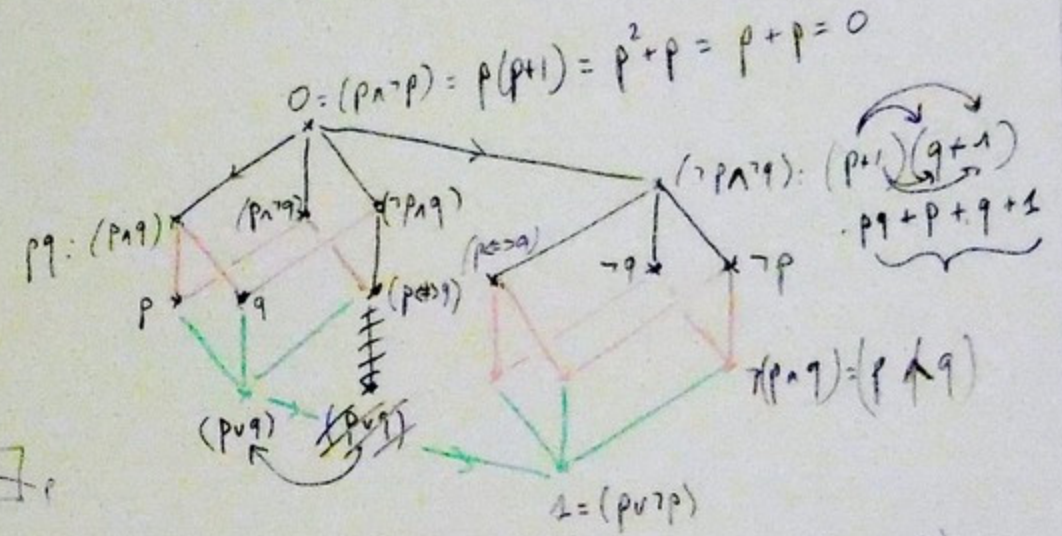 0 = (p∧¬p) = p(p+1) = p²+p = p+p = 0
(¬p∧¬q) : (p+1)(q+1)
pq + p + q + 1
pq : (p∧q)
(p∧¬q)
(¬p∧q)
(p⇔q)
¬q
¬p
p
q
(p⇎q)
¬(p∧q) = (p ↑ q)
(p∨q)
(p∨q)
1 = (p∨¬p)
p